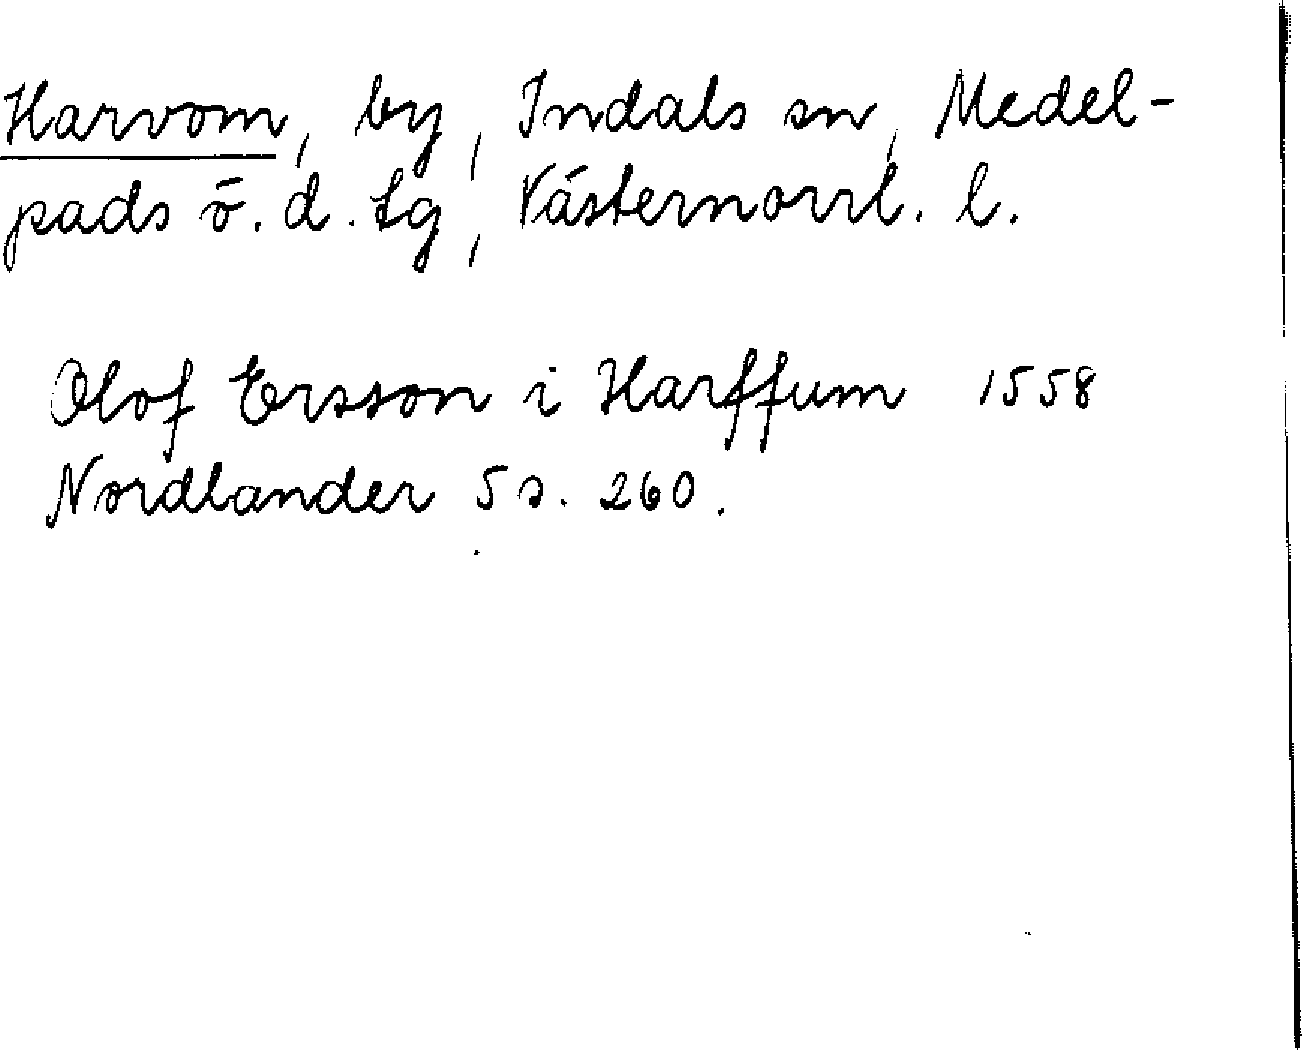 Harvom, by, Indals sn, Medel-
pads ö. d. tg, Västernorrl. l.
Olof Ersson i Harffum 1558
Nordlander 5 s. 260.